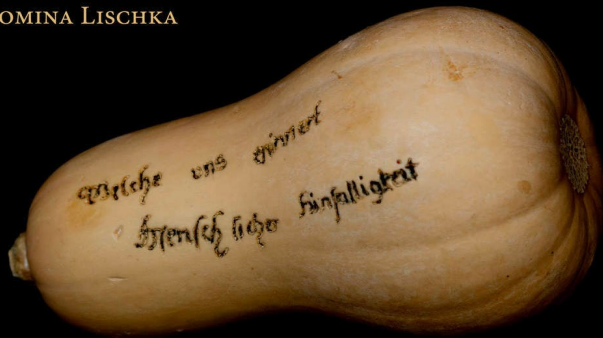 OMINA LISCHKA
Welche uns erinnert
Menschlicher hinfalligkeit